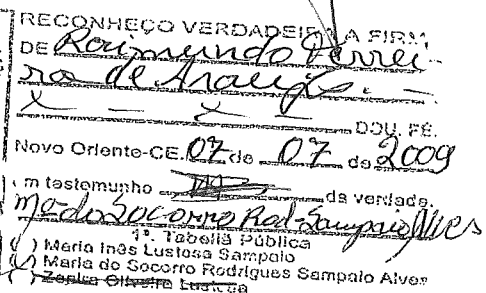 RECONHEÇO VERDADEIRA A FIRMA
DE Raimundo Ferrei
ra de Araujo. —
x — x —
DOU. FÉ.
Novo Oriente-CE. 07 de 07 de 2009
Em testemunho da verdade.
Mª do Socorro Rod. Sampaio Alves
1ª. Tabeliã Pública
( ) Maria Inês Lustosa Sampaio
( ) Maria do Socorro Rodrigues Sampaio Alves
( ) Zenira Oliveira Lustosa